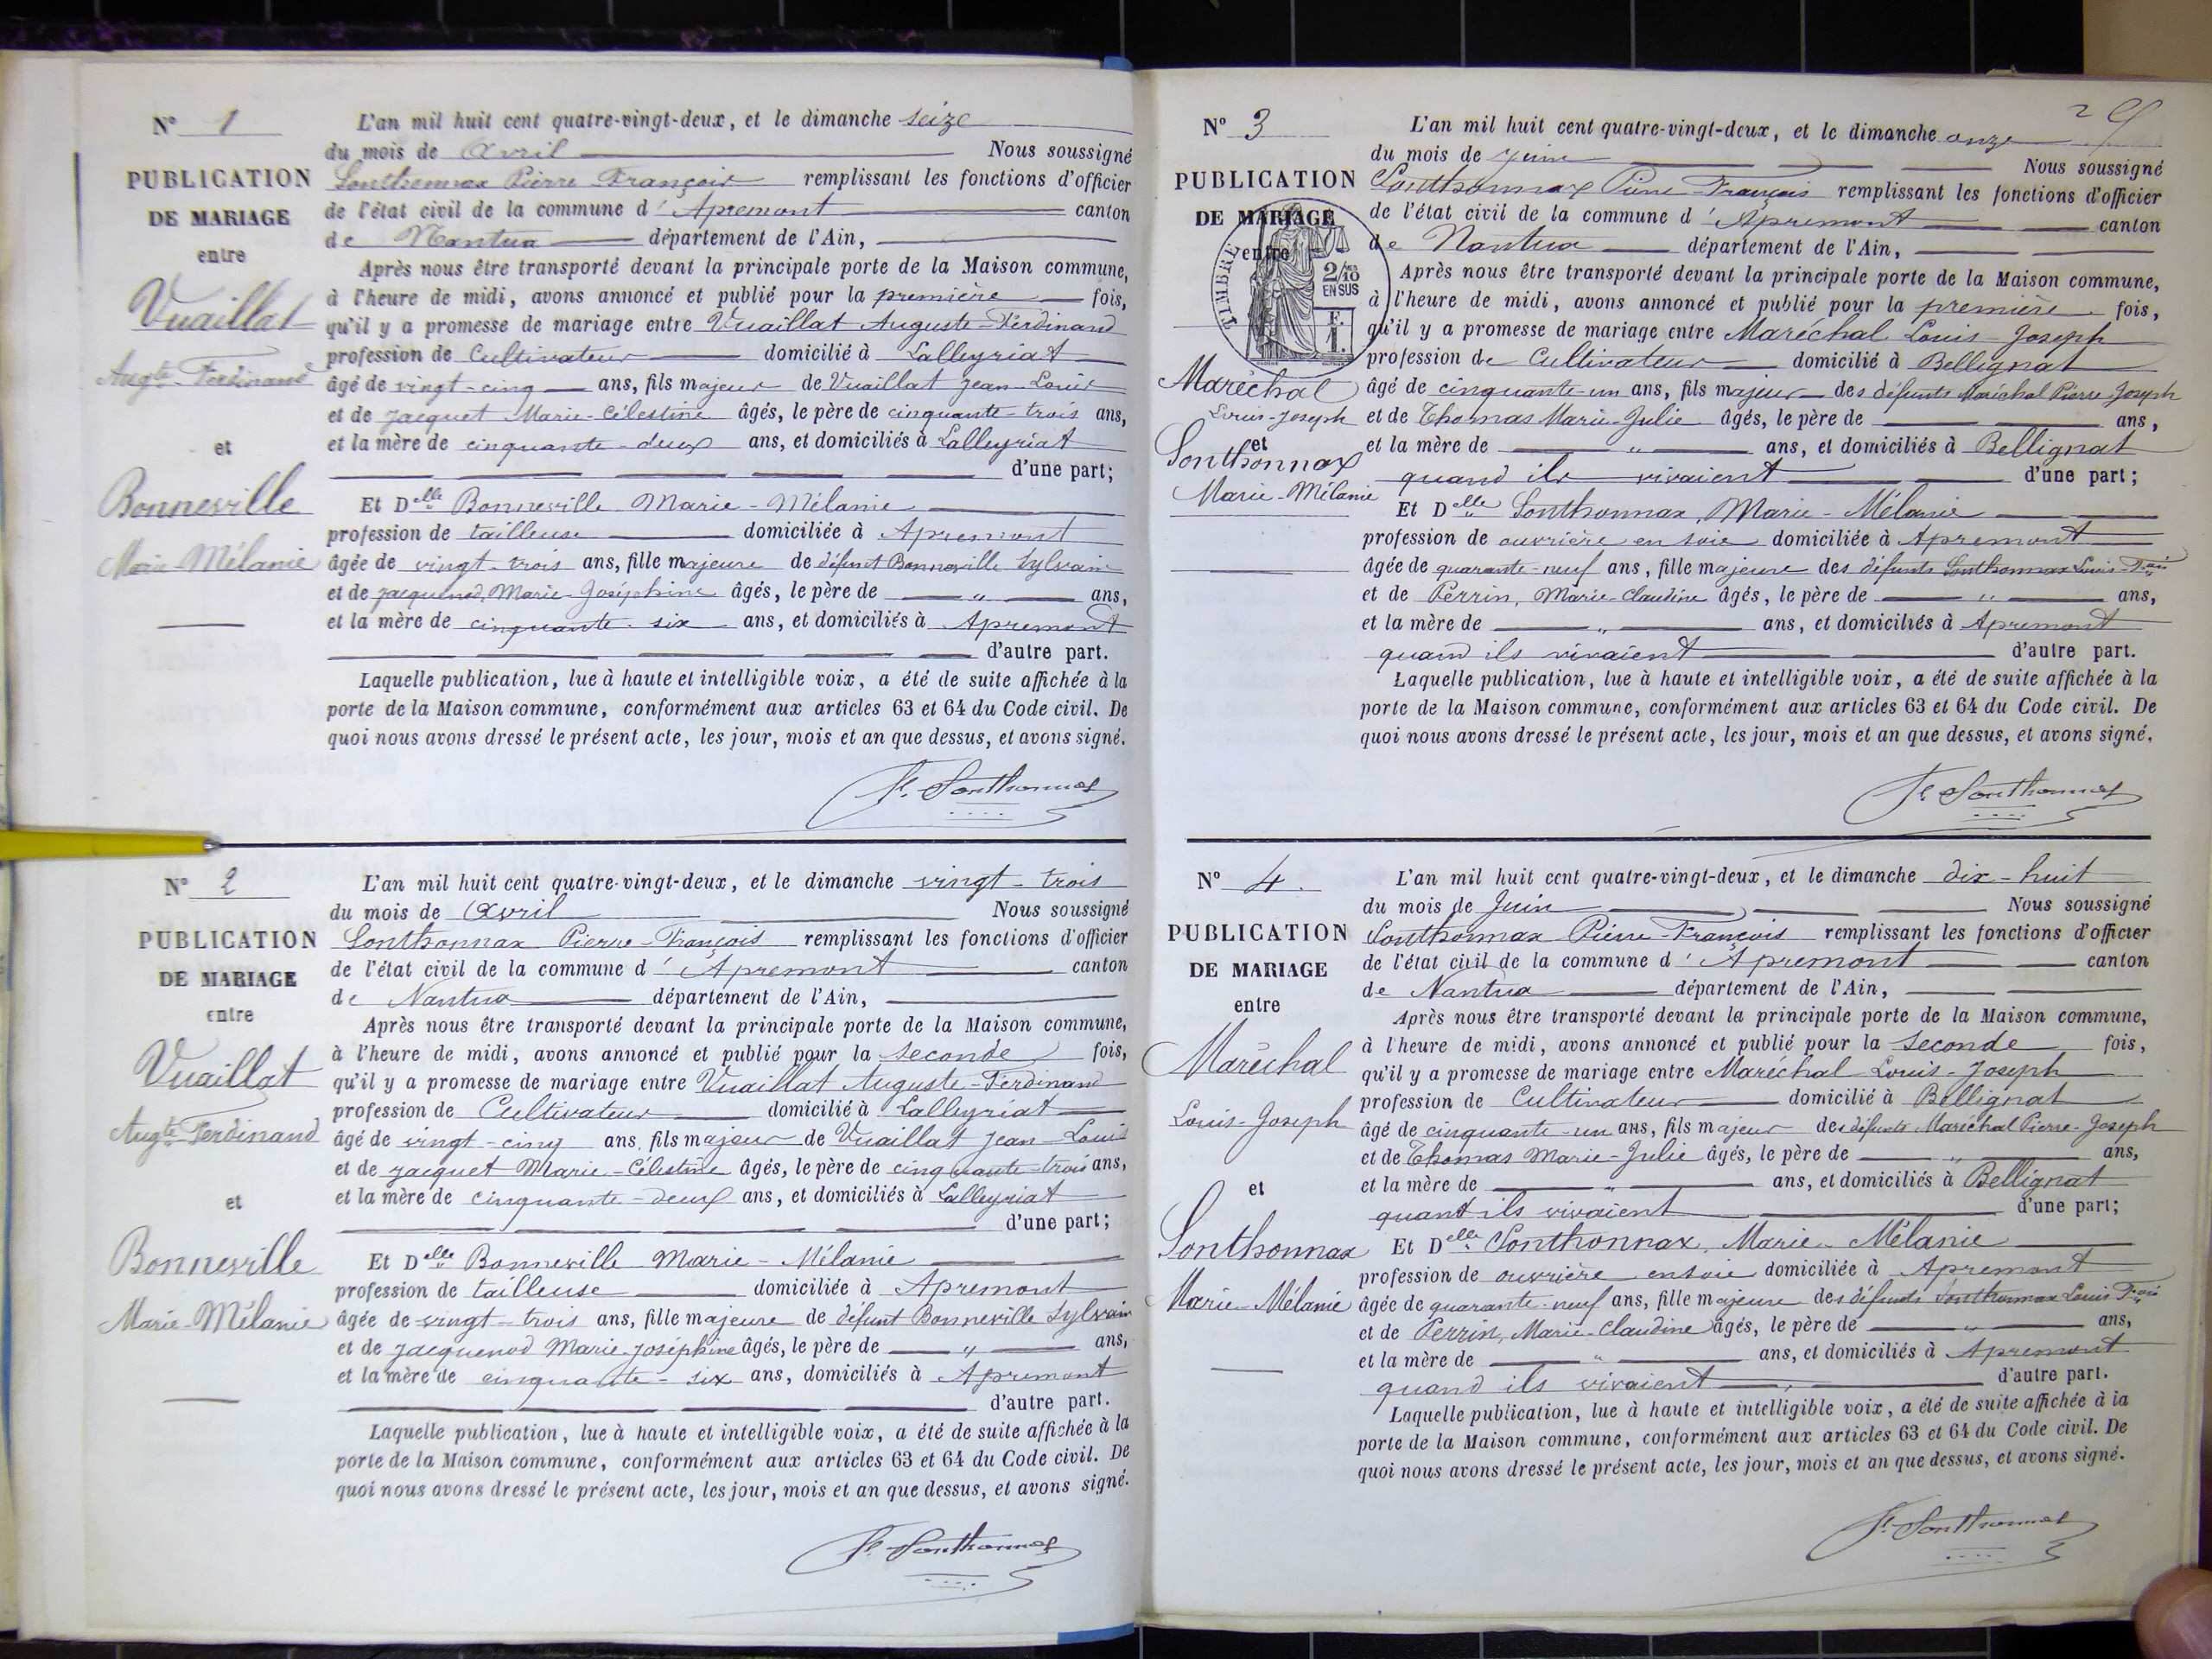 N° 1
PUBLICATION
DE MARIAGE
entre
Vuaillat
Augte Ferdinand
et
Bonneville
Marie-Mélanie
L'an mil huit cent quatre-vingt-deux, et le dimanche seize
du mois de Avril Nous soussigné
Sonthonnax Pierre François remplissant les fonctions d'officier
de l'état civil de la commune d'Apremont canton
de Nantua département de l'Ain,
Après nous être transporté devant la principale porte de la Maison commune,
à l'heure de midi, avons annoncé et publié pour la première fois,
qu'il y a promesse de mariage entre Vuaillat Auguste-Ferdinand
profession de Cultivateur domicilié à Lalleyriat
âgé de vingt-cinq ans, fils majeur de Vuaillat Jean-Louis
et de Jacquet Marie-Célestine âgés, le père de cinquante-trois ans,
et la mère de cinquante-deux ans, et domiciliés à Lalleyriat
d'une part;
Et Delle Bonneville Marie-Mélanie
profession de tailleuse domiciliée à Apremont
âgée de vingt-trois ans, fille majeure de défunt Bonneville Sylvain
et de Jacquenod, Marie-Joséphine âgés, le père de " ans,
et la mère de cinquante-six ans, et domiciliés à Apremont
d'autre part.
Laquelle publication, lue à haute et intelligible voix, a été de suite affichée à la
porte de la Maison commune, conformément aux articles 63 et 64 du Code civil. De
quoi nous avons dressé le présent acte, les jour, mois et an que dessus, et avons signé.
Fs Sonthonnax
N° 2
PUBLICATION
DE MARIAGE
entre
Vuaillat
Augte Ferdinand
et
Bonneville
Marie-Mélanie
L'an mil huit cent quatre-vingt-deux, et le dimanche vingt-trois
du mois de Avril Nous soussigné
Sonthonnax Pierre-François remplissant les fonctions d'officier
de l'état civil de la commune d'Apremont canton
de Nantua département de l'Ain,
Après nous être transporté devant la principale porte de la Maison commune,
à l'heure de midi, avons annoncé et publié pour la seconde fois,
qu'il y a promesse de mariage entre Vuaillat Auguste-Ferdinand
profession de Cultivateur domicilié à Lalleyriat
âgé de vingt-cinq ans, fils majeur de Vuaillat Jean-Louis
et de Jacquet Marie-Célestine âgés, le père de cinquante-trois ans,
et la mère de cinquante-deux ans, et domiciliés à Lalleyriat
d'une part;
Et Delle Bonneville Marie-Mélanie
profession de tailleuse domiciliée à Apremont
âgée de vingt-trois ans, fille majeure de défunt Bonneville Sylvain
et de Jacquenod Marie-Joséphine âgés, le père de " ans,
et la mère de cinquante-six ans, domiciliés à Apremont
d'autre part.
Laquelle publication, lue à haute et intelligible voix, a été de suite affichée à la
porte de la Maison commune, conformément aux articles 63 et 64 du Code civil. De
quoi nous avons dressé le présent acte, les jour, mois et an que dessus, et avons signé.
Fs Sonthonnax
N° 3
PUBLICATION
DE MARIAGE
entre
TIMBRE
2/10
EN SUS
F.
1.
Maréchal
Louis-Joseph
et
Sonthonnax
Marie-Mélanie
L'an mil huit cent quatre-vingt-deux, et le dimanche onze
du mois de Juin Nous soussigné
Sonthonnax Pierre-François remplissant les fonctions d'officier
de l'état civil de la commune d'Apremont canton
de Nantua département de l'Ain,
Après nous être transporté devant la principale porte de la Maison commune,
à l'heure de midi, avons annoncé et publié pour la première fois,
qu'il y a promesse de mariage entre Maréchal Louis-Joseph
profession de Cultivateur domicilié à Bellignat
âgé de cinquante-un ans, fils majeur des défunts Maréchal Pierre-Joseph
et de Thomas Marie-Julie âgés, le père de ans,
et la mère de " ans, et domiciliés à Bellignat
quand ils vivaient d'une part;
Et Delle Sonthonnax, Marie-Mélanie
profession de ouvrière en soie domiciliée à Apremont
âgée de quarante-neuf ans, fille majeure des défunts Sonthonnax Louis-Fçois
et de Perrin, Marie-Claudine âgés, le père de " ans,
et la mère de " ans, et domiciliés à Apremont
quand ils vivaient d'autre part.
Laquelle publication, lue à haute et intelligible voix, a été de suite affichée à la
porte de la Maison commune, conformément aux articles 63 et 64 du Code civil. De
quoi nous avons dressé le présent acte, les jour, mois et an que dessus, et avons signé.
Fs Sonthonnax
N° 4.
PUBLICATION
DE MARIAGE
entre
Maréchal
Louis-Joseph
et
Sonthonnax
Marie-Mélanie
L'an mil huit cent quatre-vingt-deux, et le dimanche dix-huit
du mois de Juin Nous soussigné
Sonthonnax Pierre-François remplissant les fonctions d'officier
de l'état civil de la commune d'Apremont canton
de Nantua département de l'Ain,
Après nous être transporté devant la principale porte de la Maison commune,
à l'heure de midi, avons annoncé et publié pour la seconde fois,
qu'il y a promesse de mariage entre Maréchal Louis-Joseph
profession de Cultivateur domicilié à Bellignat
âgé de cinquante-un ans, fils majeur des défunts Maréchal Pierre-Joseph
et de Thomas Marie-Julie âgés, le père de " ans,
et la mère de " ans, et domiciliés à Bellignat
quant ils vivaient d'une part;
Et Delle Sonthonnax, Marie-Mélanie
profession de ouvrière en soie domiciliée à Apremont
âgée de quarante-neuf ans, fille majeure des défunts Sonthonnax Louis-Fçois
et de Perrin, Marie-Claudine âgés, le père de " ans,
et la mère de " ans, et domiciliés à Apremont
quand ils vivaient d'autre part.
Laquelle publication, lue à haute et intelligible voix, a été de suite affichée à la
porte de la Maison commune, conformément aux articles 63 et 64 du Code civil. De
quoi nous avons dressé le présent acte, les jour, mois et an que dessus, et avons signé.
Fs Sonthonnax